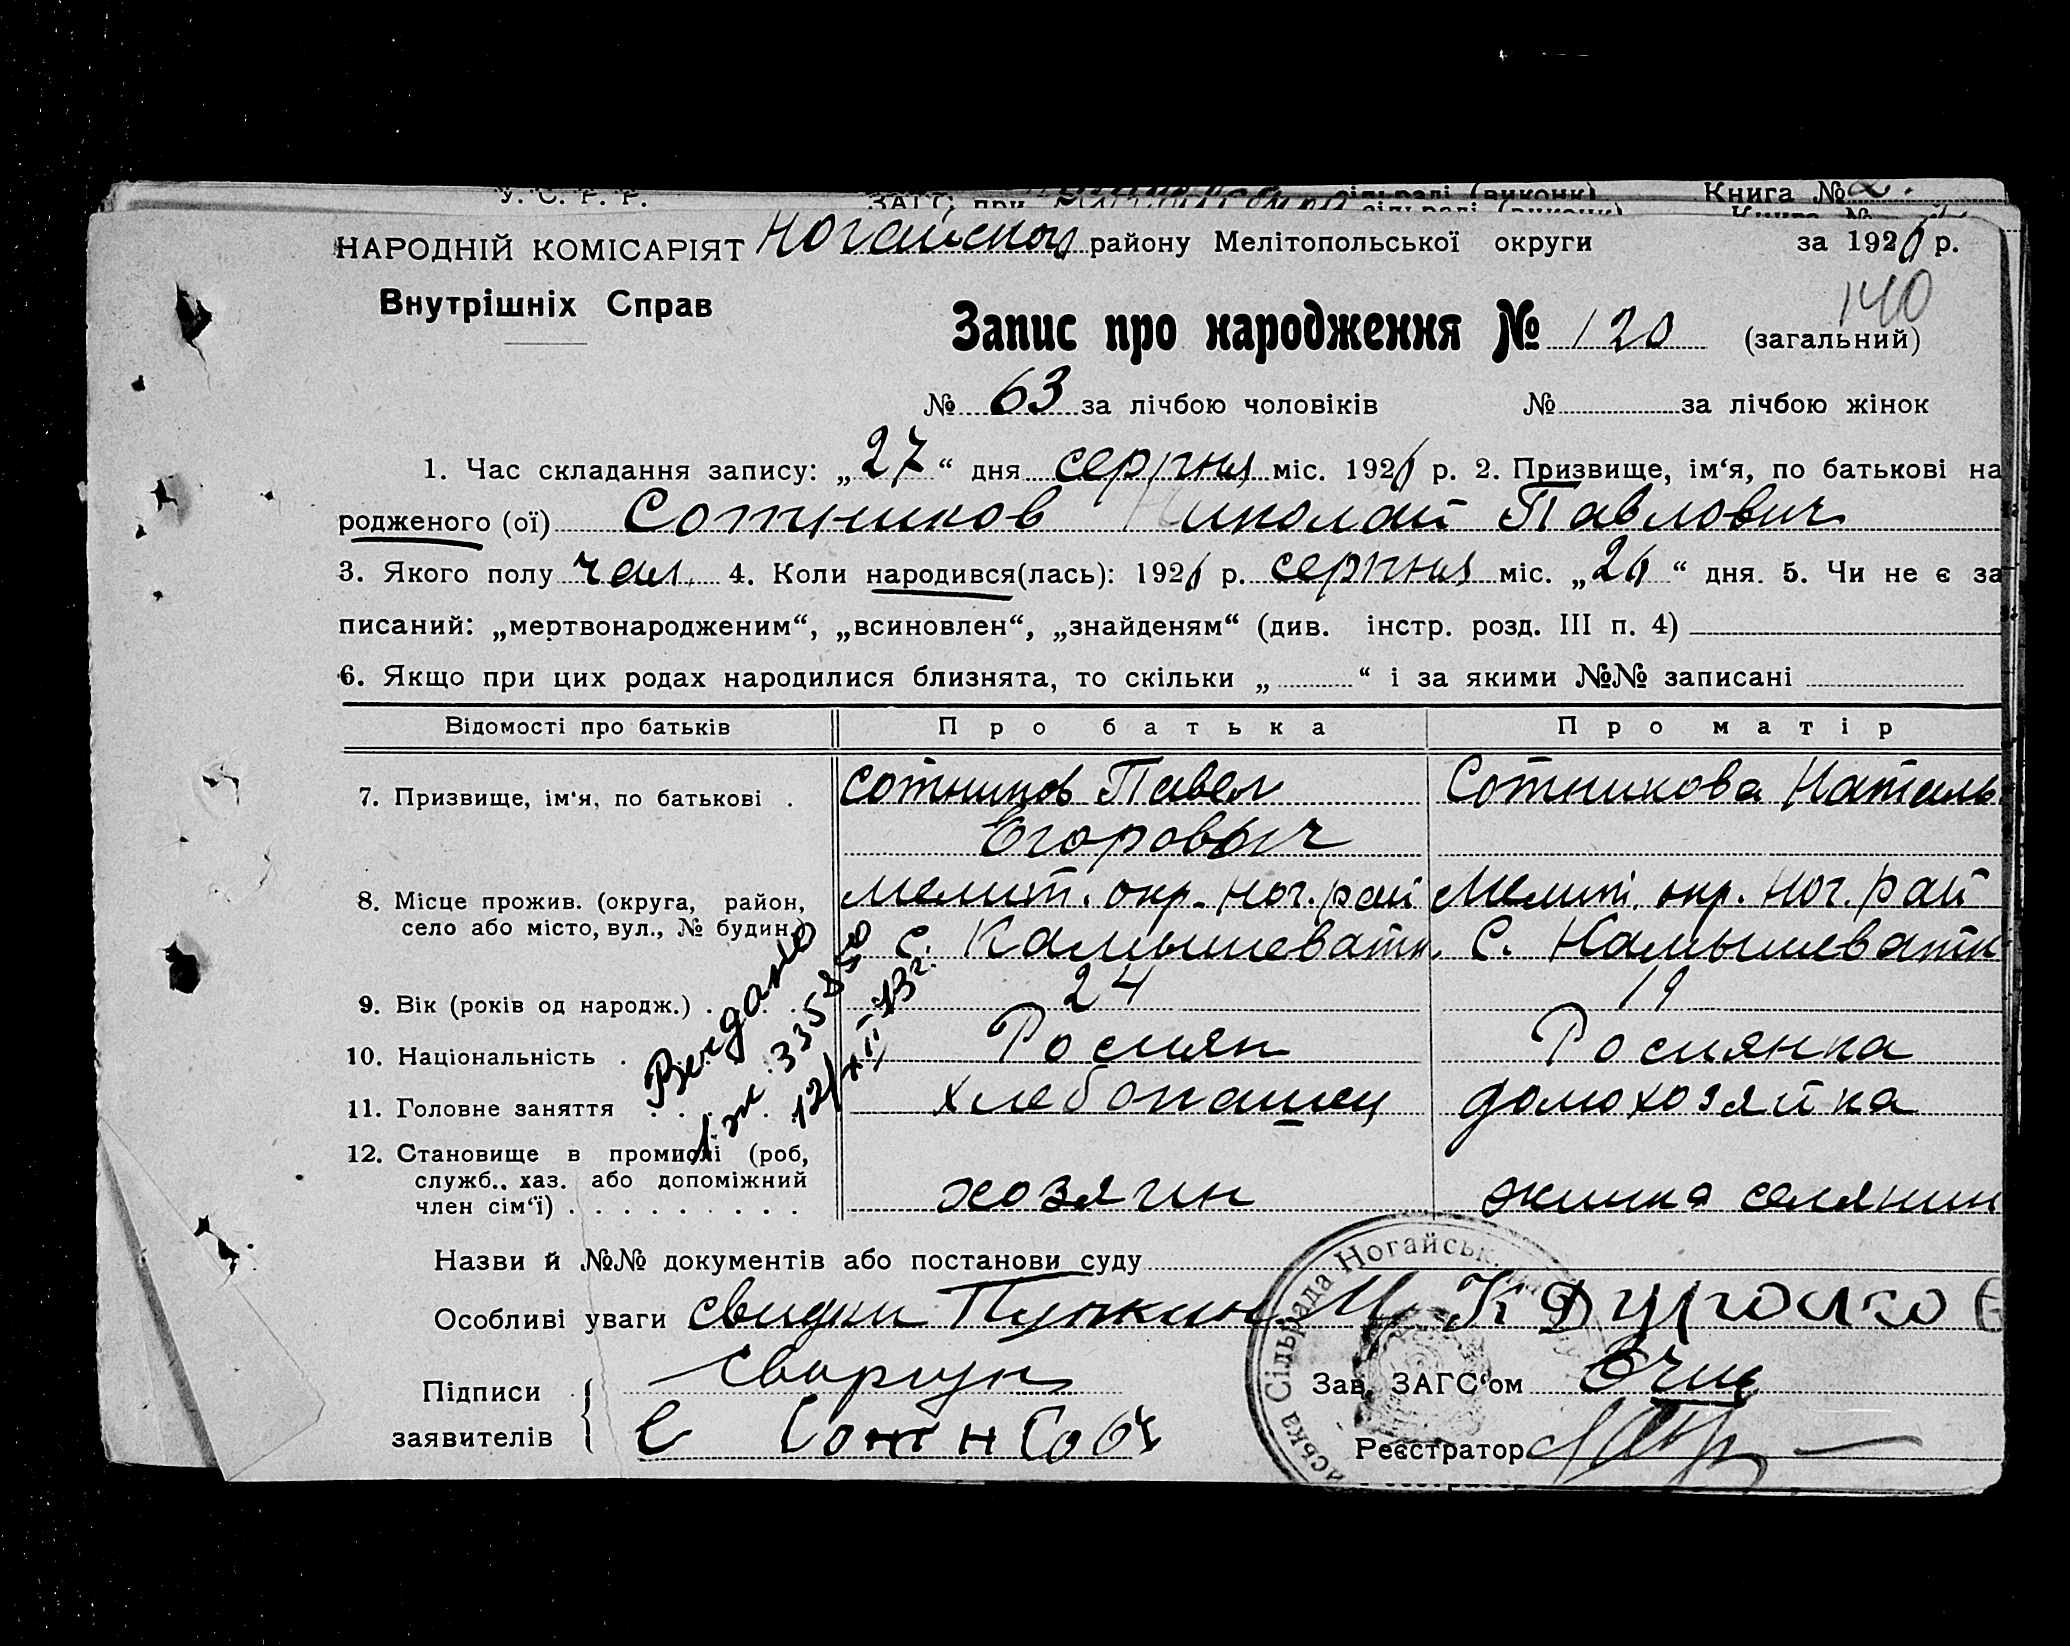 У. С. Р. Р. ЗАГС при сільраді (виконк) Книга № 2.
НАРОДНІЙ КОМІСАРІЯТ Ногайского району Мелітопольської округи за 1926 р.
Внутрішніх Справ
140
Запис про народження № 120 (загальний)
№ 63 за лічбою чоловіків № за лічбою жінок
1. Час складання запису: „27“ дня серпня міс. 1926 р. 2. Призвище, ім‘я, по батькові на
родженого (ої) Сотников Николай Павлович
3. Якого полу чол. 4. Коли народився(лась): 1926 р. серпня міс. „26“ дня. 5. Чи не є за
писаний: „мертвонародженим“, „всиновлен“, „знайденям“ (див. інстр. розд. III п. 4)
6. Якщо при цих родах народилися близнята, то скільки „ “ і за якими №№ записані
Відомості про батьків Про батька Про матір
7. Призвище, ім‘я, по батькові . Сотников Павел Сотникова Наталь
Егорович
8. Місце прожив. (округа, район, Мелит. окр. Ног. рай Мелит. окр. Ног. рай
село або місто, вул., № будин.) с. Камышеватк. С. Камышеватк
9. Вік (років од народж.) . . . . 24 19
10. Національність . Росиян Росиянка
11. Головне заняття . . . . хлебопашец домохозяйка
12. Становище в промислі (роб,
служб., хаз. або допоміжний
член сім‘ї) . . . . . . . . . хозяин жинка селянин
Видано
335850
12/XII 73г.
Назви й №№ документів або постанови суду
Особливі уваги свидки Пупкин
Підписи Зав. ЗАГС‘ом
заявителів С
Реєстратор
Сільрада Ногайськ.